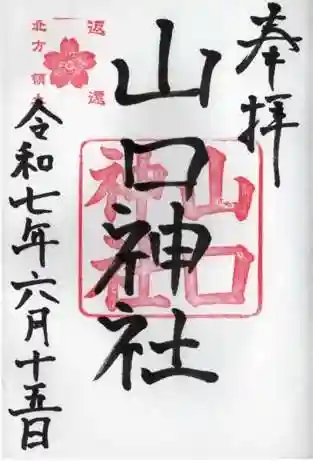 奉拝
山口神社
山口
神社
返還
北方領土
令和七年六月十五日